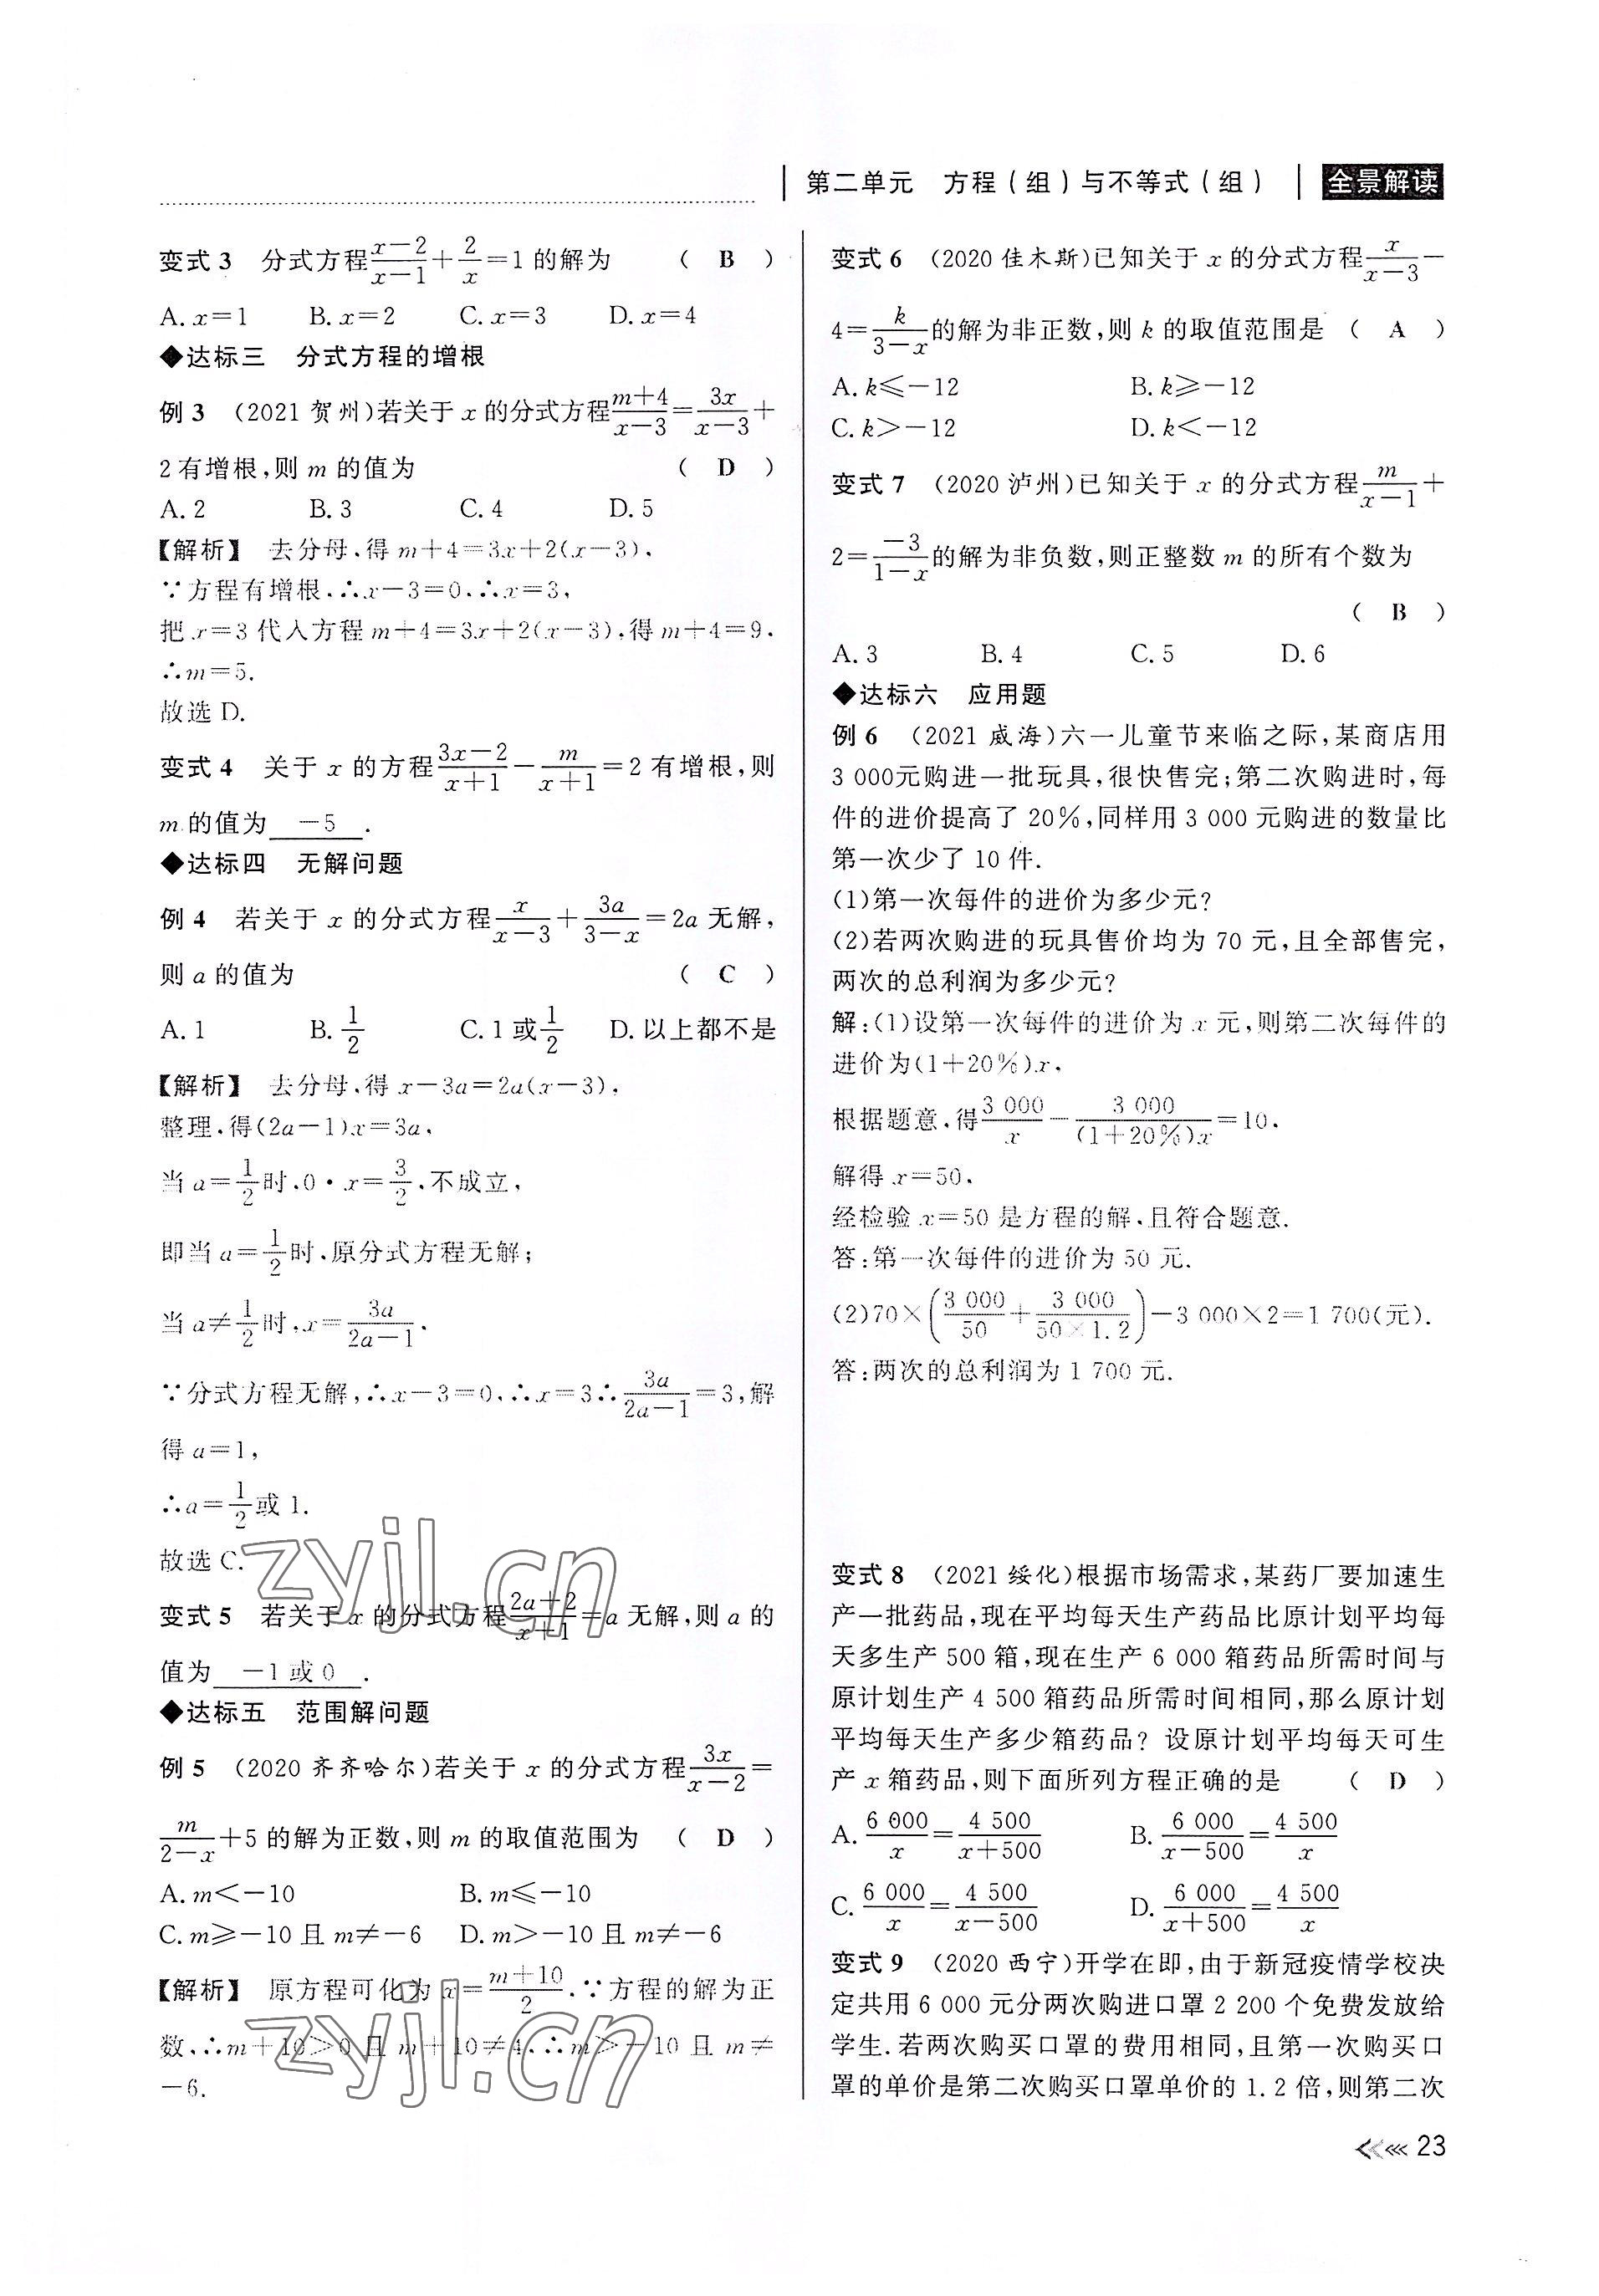 第二单元　方程(组)与不等式(组)　全景解读
变式 3　分式方程\frac{x-2}{x-1}+\frac{2}{x}=1的解为　( B )
A. x=1　B. x=2　C. x=3　D. x=4
◆达标三　分式方程的增根
例 3　(2021 贺州)若关于 x 的分式方程\frac{m+4}{x-3}=\frac{3x}{x-3}+
2有增根,则 m 的值为　( D )
A. 2　B. 3　C. 4　D. 5
【解析】　去分母,得 m+4=3x+2(x-3),
∵方程有增根,∴x-3=0,∴x=3,
把 x=3 代入方程 m+4=3x+2(x-3),得 m+4=9,
∴m=5.
故选 D.
变式 4　关于 x 的方程\frac{3x-2}{x+1}-\frac{m}{x+1}=2 有增根,则
m 的值为 -5 .
◆达标四　无解问题
例 4　若关于 x 的分式方程\frac{x}{x-3}+\frac{3a}{3-x}=2a 无解,
则 a 的值为　( C )
A. 1　B. \frac{1}{2}　C. 1 或\frac{1}{2}　D. 以上都不是
【解析】　去分母,得 x-3a=2a(x-3),
整理,得(2a-1)x=3a,
当 a=\frac{1}{2}时,0·x=\frac{3}{2},不成立,
即当 a=\frac{1}{2}时,原分式方程无解;
当 a≠\frac{1}{2}时,x=\frac{3a}{2a-1}.
∵分式方程无解,∴x-3=0,∴x=3∴\frac{3a}{2a-1}=3,解
得 a=1,
∴a=\frac{1}{2}或 1.
故选 C.
变式 5　若关于 x 的分式方程\frac{2a+2}{x+1}=a 无解,则 a 的
值为 -1 或 0 .
◆达标五　范围解问题
例 5　(2020 齐齐哈尔)若关于 x 的分式方程\frac{3x}{x-2}=
\frac{m}{2-x}+5 的解为正数,则 m 的取值范围为　( D )
A. m<-10　B. m≤-10
C. m≥-10 且 m≠-6　D. m>-10 且 m≠-6
【解析】　原方程可化为 x=\frac{m+10}{2}.∵方程的解为正
数,∴m+10>0 且 m+10≠4,∴m>-10 且 m≠
-6.
变式 6　(2020 佳木斯)已知关于 x 的分式方程\frac{x}{x-3}-
4=\frac{k}{3-x}的解为非正数,则 k 的取值范围是　( A )
A. k≤-12　B. k≥-12
C. k>-12　D. k<-12
变式 7　(2020 泸州)已知关于 x 的分式方程\frac{m}{x-1}+
2=\frac{-3}{1-x}的解为非负数,则正整数 m 的所有个数为
( B )
A. 3　B. 4　C. 5　D. 6
◆达标六　应用题
例 6　(2021 威海)六一儿童节来临之际,某商店用
3 000元购进一批玩具,很快售完;第二次购进时,每
件的进价提高了 20%,同样用 3 000 元购进的数量比
第一次少了 10 件.
(1)第一次每件的进价为多少元?
(2)若两次购进的玩具售价均为 70 元,且全部售完,
两次的总利润为多少元?
解:(1)设第一次每件的进价为 x 元,则第二次每件的
进价为(1+20%)x,
根据题意,得\frac{3 000}{x}-\frac{3 000}{(1+20%)x}=10,
解得 x=50,
经检验 x=50 是方程的解,且符合题意.
答:第一次每件的进价为 50 元.
(2)70×(\frac{3 000}{50}+\frac{3 000}{50×1.2})-3 000×2=1 700(元).
答:两次的总利润为 1 700 元.
变式 8　(2021 绥化)根据市场需求,某药厂要加速生
产一批药品,现在平均每天生产药品比原计划平均每
天多生产 500 箱,现在生产 6 000 箱药品所需时间与
原计划生产 4 500 箱药品所需时间相同,那么原计划
平均每天生产多少箱药品?设原计划平均每天可生
产 x 箱药品,则下面所列方程正确的是　( D )
A. \frac{6 000}{x}=\frac{4 500}{x+500}　B. \frac{6 000}{x-500}=\frac{4 500}{x}
C. \frac{6 000}{x}=\frac{4 500}{x-500}　D. \frac{6 000}{x+500}=\frac{4 500}{x}
变式 9　(2020 西宁)开学在即,由于新冠疫情学校决
定共用 6 000 元分两次购进口罩 2 200 个免费发放给
学生.若两次购买口罩的费用相同,且第一次购买口
罩的单价是第二次购买口罩单价的 1.2 倍,则第二次
23
zyjl.cn
zyjl.cn